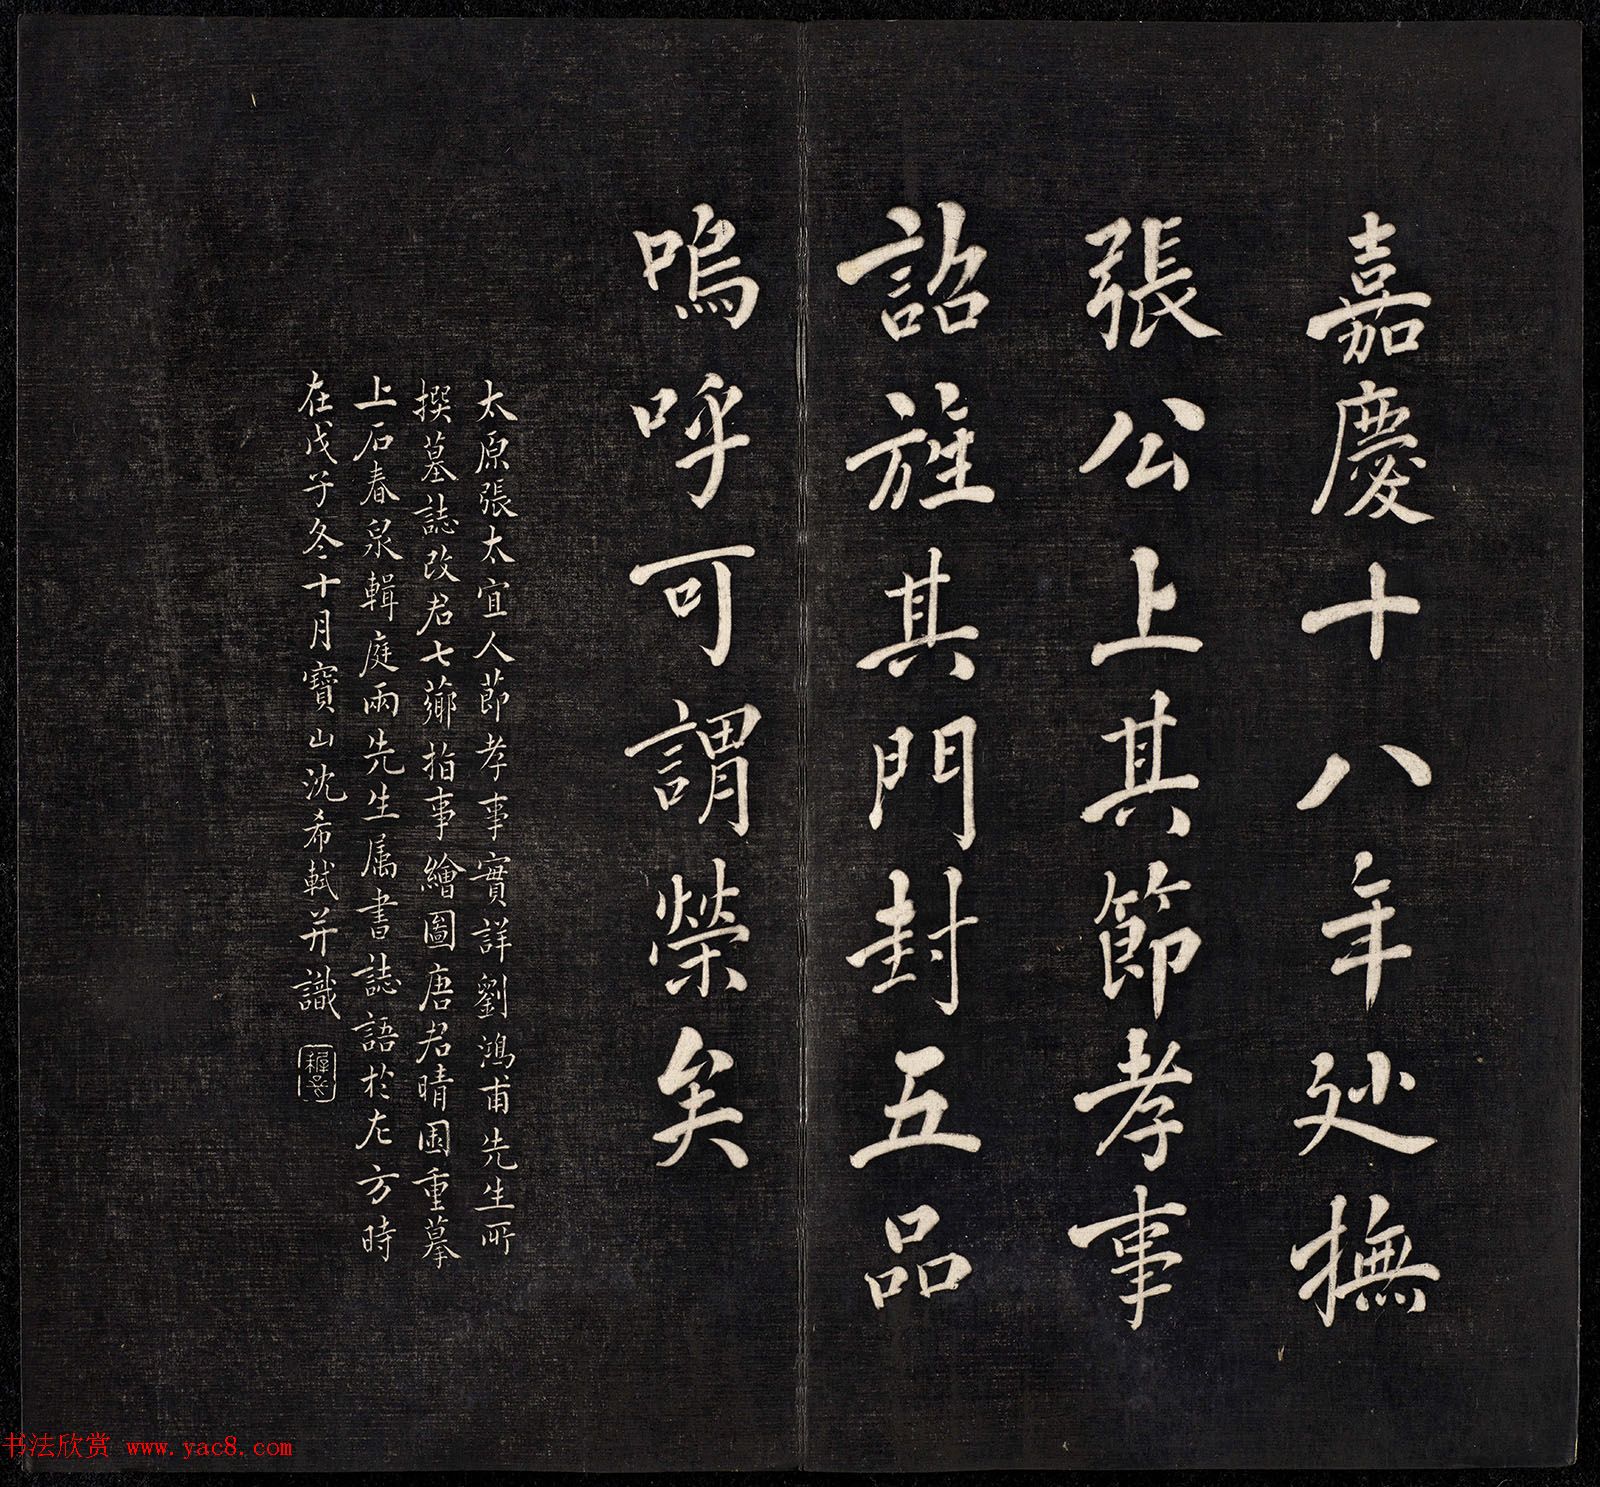 嘉慶十八年廵撫
張公上其節孝事
詔旌其門封五品
嗚呼可謂榮矣
太原張太宜人節孝事實詳劉鴻甫先生所
撰墓誌改君七薌指事繪圖唐君晴園重摹
上石春泉輯庭兩先生属書誌語於左方時
在戊子冬十月寶山沈希軾并識
书法欣赏 www.yac8.com